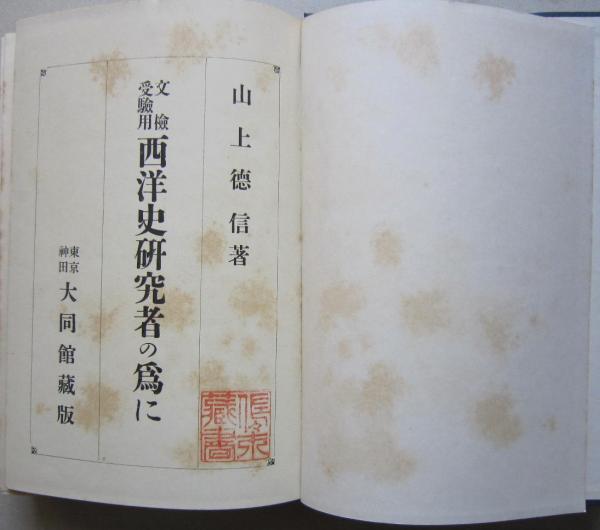 山上德信著
文檢
受驗用
西洋史研究者の爲に
東京
神田
大同館藏版
藏書